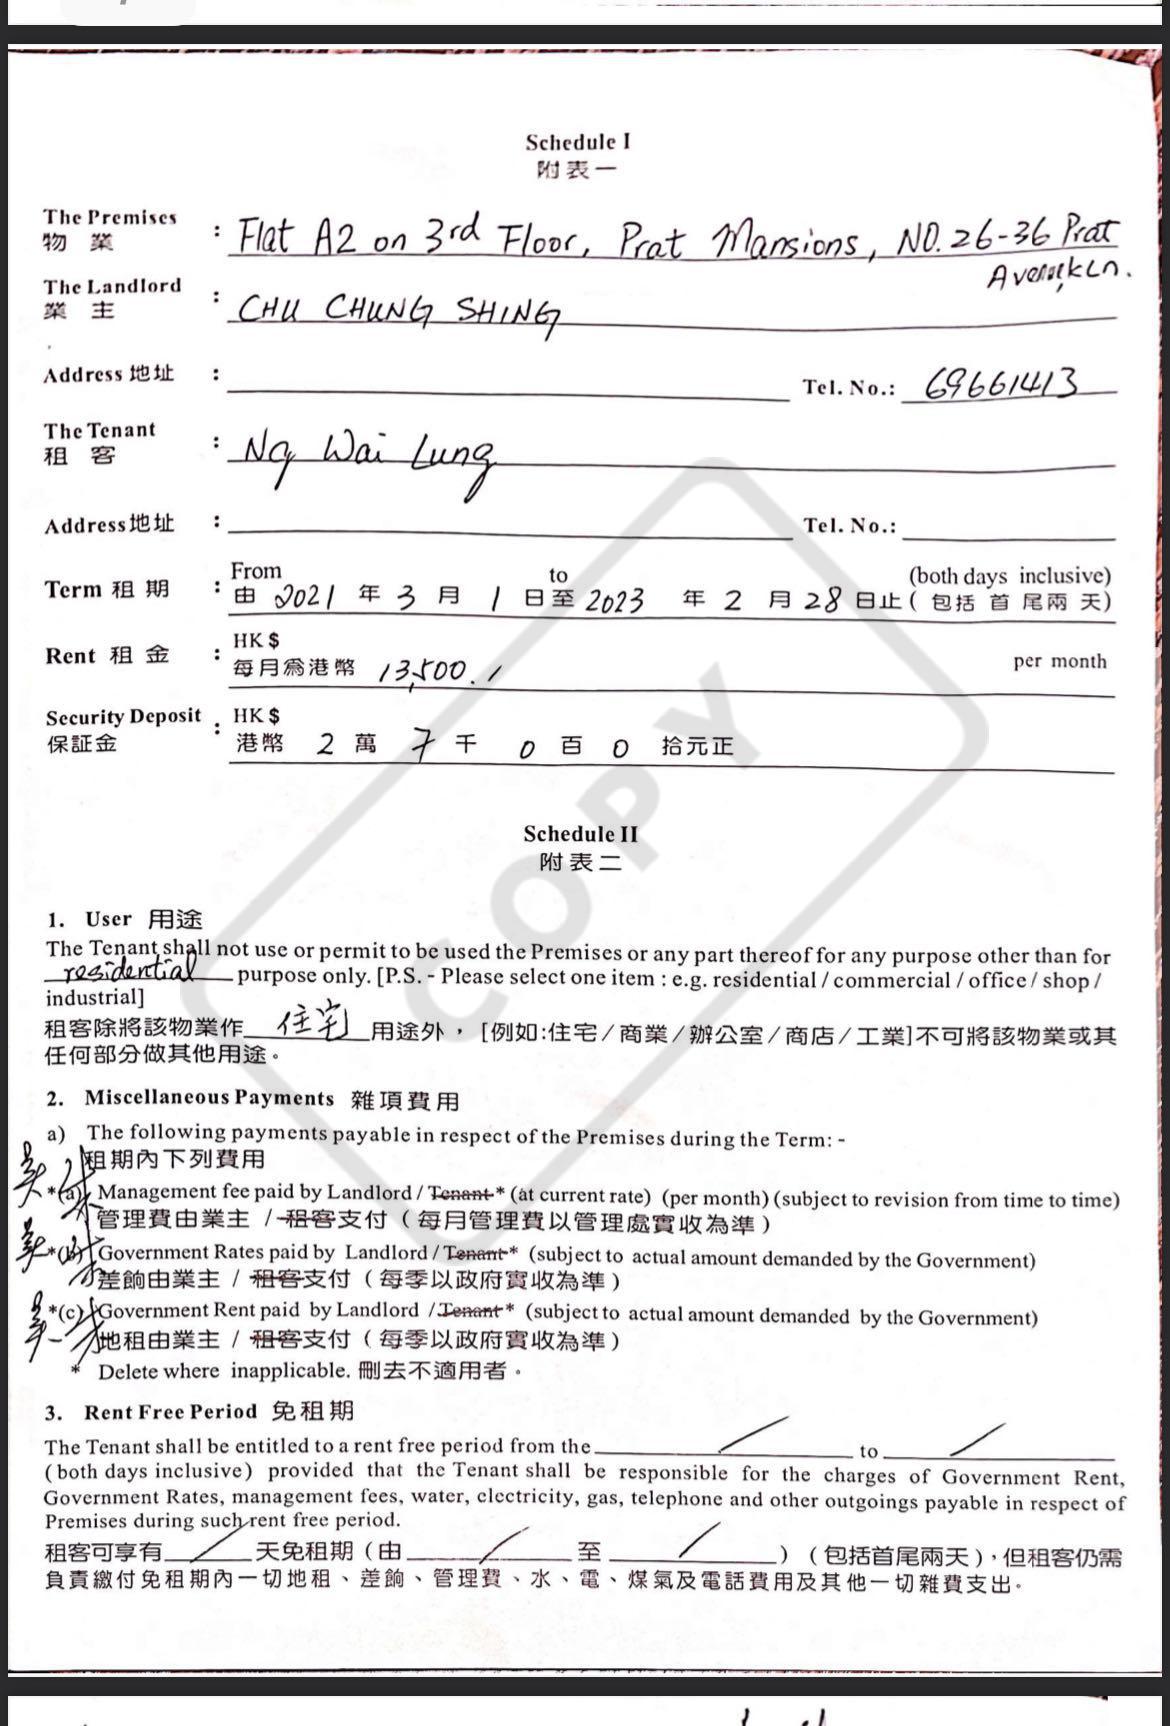 Schedule I
附表一
The Premises
物業
: Flat A2 on 3rd Floor, Prat Mansions, NO. 26-36 Prat
Avenue, Kln.
The Landlord
業主
: CHU CHUNG SHING
Address 地址 : Tel. No.: 69661413
The Tenant
租客
: Ng Wai Lung
Address 地址 : Tel. No.:
From to (both days inclusive)
Term 租期 : 由 2021 年 3 月 1 日至 2023 年 2 月 28 日止 ( 包括首尾兩天)
HK $
Rent 租金 : 每月爲港幣 13,500./ per month
Security Deposit : HK $
保証金 港幣 2 萬 7 千 0 百 0 拾元正
COPY
Schedule II
附表二
1. User 用途
The Tenant shall not use or permit to be used the Premises or any part thereof for any purpose other than for
residential purpose only. [P.S. - Please select one item : e.g. residential / commercial / office / shop /
industrial]
租客除將該物業作 住宅 用途外，[例如:住宅/商業/辦公室/商店/工業]不可將該物業或其
任何部分做其他用途。
2. Miscellaneous Payments 雜項費用
a) The following payments payable in respect of the Premises during the Term: -
租期內下列費用
*(a) Management fee paid by Landlord / Tenant * (at current rate) (per month) (subject to revision from time to time)
管理費由業主 / 租客支付（每月管理費以管理處實收為準）
*(b) Government Rates paid by Landlord / Tenant * (subject to actual amount demanded by the Government)
差餉由業主 / 租客支付（每季以政府實收為準）
*(c) Government Rent paid by Landlord / Tenant * (subject to actual amount demanded by the Government)
地租由業主 / 租客支付（每季以政府實收為準）
* Delete where inapplicable. 刪去不適用者。
3. Rent Free Period 免租期
The Tenant shall be entitled to a rent free period from the / to /
(both days inclusive) provided that the Tenant shall be responsible for the charges of Government Rent,
Government Rates, management fees, water, electricity, gas, telephone and other outgoings payable in respect of
Premises during such rent free period.
租客可享有 / 天免租期（由 / 至 / ）（包括首尾兩天），但租客仍需
負責繳付免租期內一切地租、差餉、管理費、水、電、煤氣及電話費用及其他一切雜費支出。